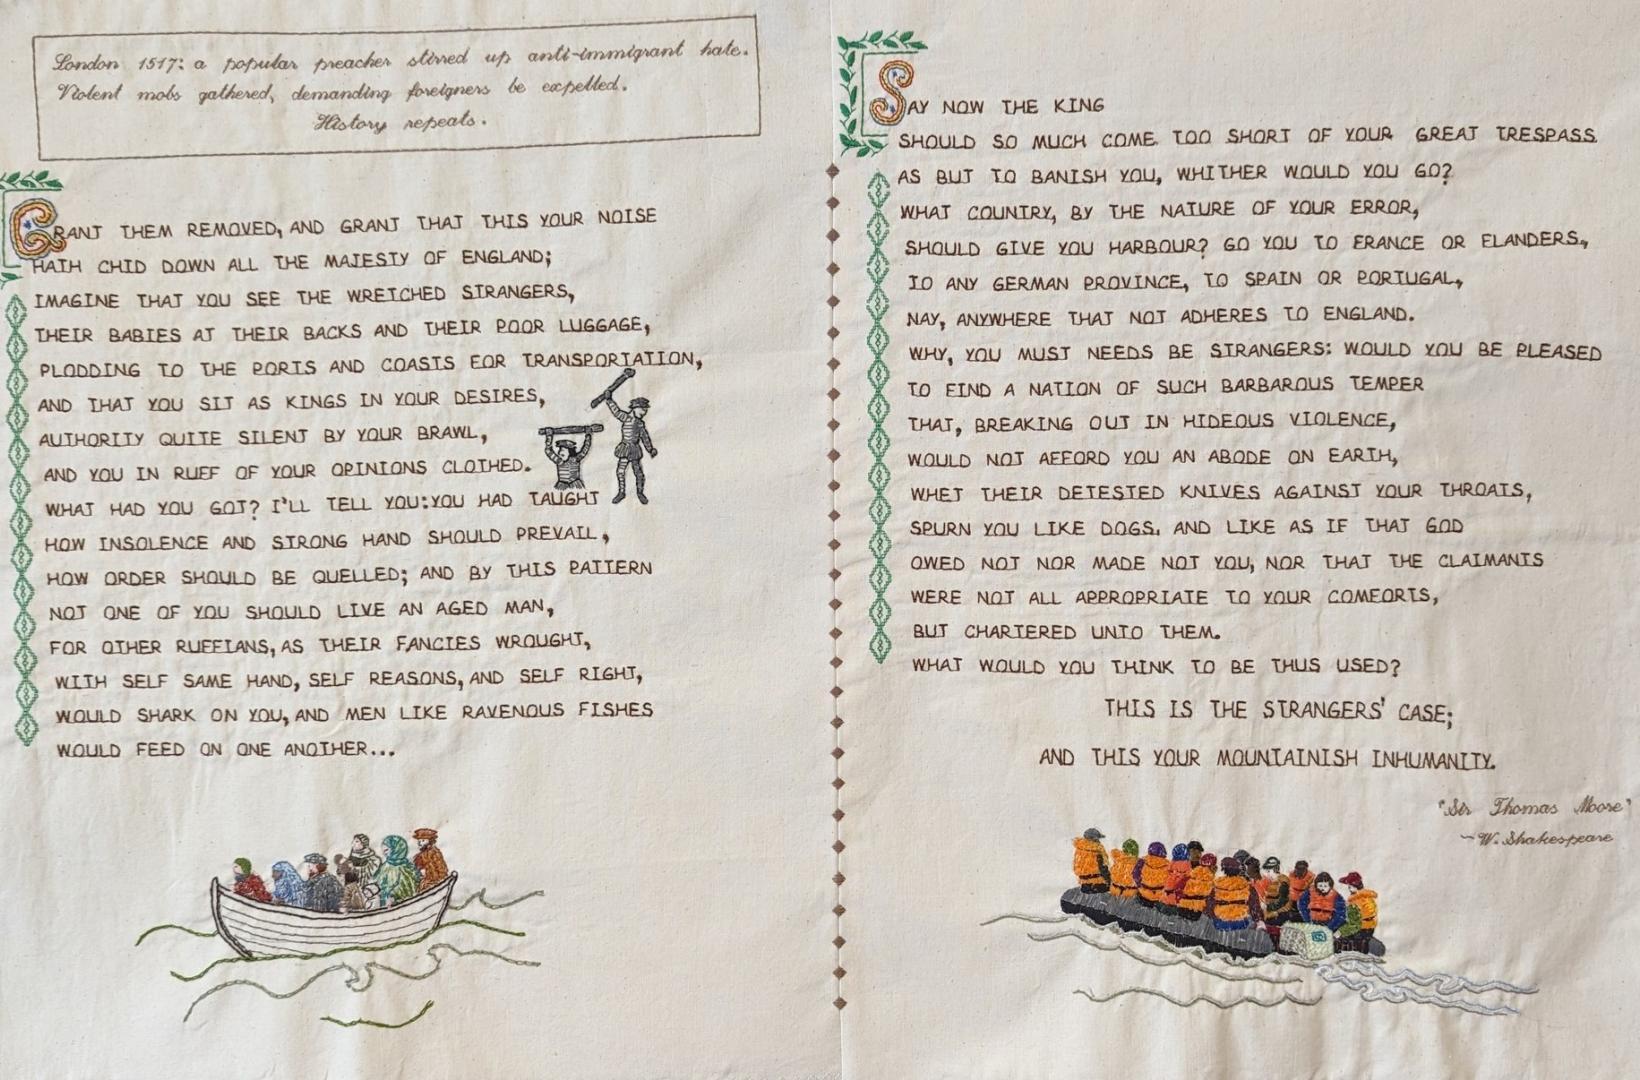 London 1517: a popular preacher stirred up anti-immigrant hate.
Violent mobs gathered, demanding foreigners be expelled.
History repeats.
GRANT THEM REMOVED, AND GRANT THAT THIS YOUR NOISE
HATH CHID DOWN ALL THE MAJESTY OF ENGLAND;
IMAGINE THAT YOU SEE THE WRETCHED STRANGERS,
THEIR BABIES AT THEIR BACKS AND THEIR POOR LUGGAGE,
PLODDING TO THE PORTS AND COASTS FOR TRANSPORTATION,
AND THAT YOU SIT AS KINGS IN YOUR DESIRES,
AUTHORITY QUITE SILENT BY YOUR BRAWL,
AND YOU IN RUFF OF YOUR OPINIONS CLOTHED.
WHAT HAD YOU GOT? I'LL TELL YOU: YOU HAD TAUGHT
HOW INSOLENCE AND STRONG HAND SHOULD PREVAIL,
HOW ORDER SHOULD BE QUELLED; AND BY THIS PATTERN
NOT ONE OF YOU SHOULD LIVE AN AGED MAN,
FOR OTHER RUFFIANS, AS THEIR FANCIES WROUGHT,
WITH SELF SAME HAND, SELF REASONS, AND SELF RIGHT,
WOULD SHARK ON YOU, AND MEN LIKE RAVENOUS FISHES
WOULD FEED ON ONE ANOTHER...
SAY NOW THE KING
SHOULD SO MUCH COME TOO SHORT OF YOUR GREAT TRESPASS
AS BUT TO BANISH YOU, WHITHER WOULD YOU GO?
WHAT COUNTRY, BY THE NATURE OF YOUR ERROR,
SHOULD GIVE YOU HARBOUR? GO YOU TO FRANCE OR FLANDERS,
TO ANY GERMAN PROVINCE, TO SPAIN OR PORTUGAL,
NAY, ANYWHERE THAT NOT ADHERES TO ENGLAND.
WHY, YOU MUST NEEDS BE STRANGERS: WOULD YOU BE PLEASED
TO FIND A NATION OF SUCH BARBAROUS TEMPER
THAT, BREAKING OUT IN HIDEOUS VIOLENCE,
WOULD NOT AFFORD YOU AN ABODE ON EARTH,
WHET THEIR DETESTED KNIVES AGAINST YOUR THROATS,
SPURN YOU LIKE DOGS, AND LIKE AS IF THAT GOD
OWED NOT NOR MADE NOT YOU, NOR THAT THE CLAIMANTS
WERE NOT ALL APPROPRIATE TO YOUR COMFORTS,
BUT CHARTERED UNTO THEM.
WHAT WOULD YOU THINK TO BE THUS USED?
THIS IS THE STRANGERS' CASE;
AND THIS YOUR MOUNTAINISH INHUMANITY.
"Sir Thomas Moore"
~W. Shakespeare